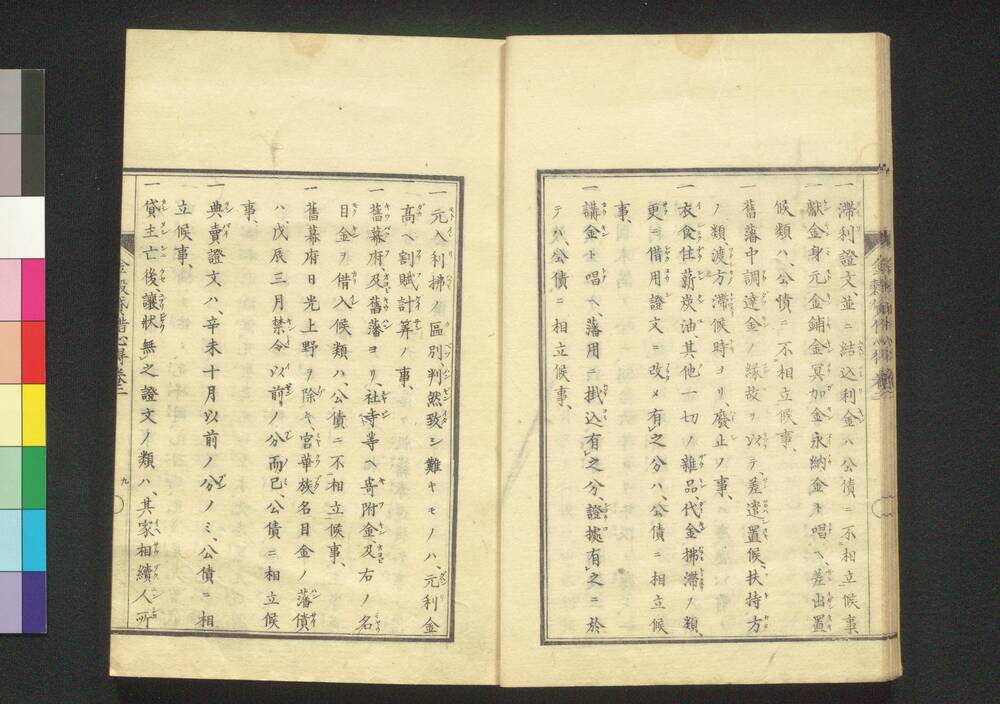 一滯利證文、並ニ結込利金ハ公債ニ不相立候事
一獻金身元金鋪金冥加金永納金ト唱ヘ、差出置
候類ハ、公債ニ不相立候事、
一舊藩中調達金ノ縁故ヲ以テ、差遣置候、扶持方
ノ類渡方滯候時ヨリ、廢止ノ事、
一衣食住薪炭油其他一切ノ雜品、代金拂滯ノ類、
更ニ借用證文ニ改メ有之分ハ、公債ニ相立候
事、
一講金ト唱ヘ、藩用ニ掛込有之分、證據有之ニ於
テハ、公債ニ相立候事、
一元入利拂ノ區別、判然致シ難キモノハ、元利金
高ヘ割賦計算ノ事、
一舊幕府、及舊藩ヨリ、社寺等ヘ寄附金及右ノ名
目金ヲ借入候類ハ、公債ニ不相立候事、
一舊幕府日光上野ヲ除キ、宮華族名目金ノ藩債
ハ、戊辰三月禁令以前ノ分而已、公債ニ相立候
事、
一典賣證文ハ、辛未十月以前ノ分ノミ、公債ニ相
立候事、
一貸主亡後、讓狀無之證文ノ類ハ、其家相續人所
九